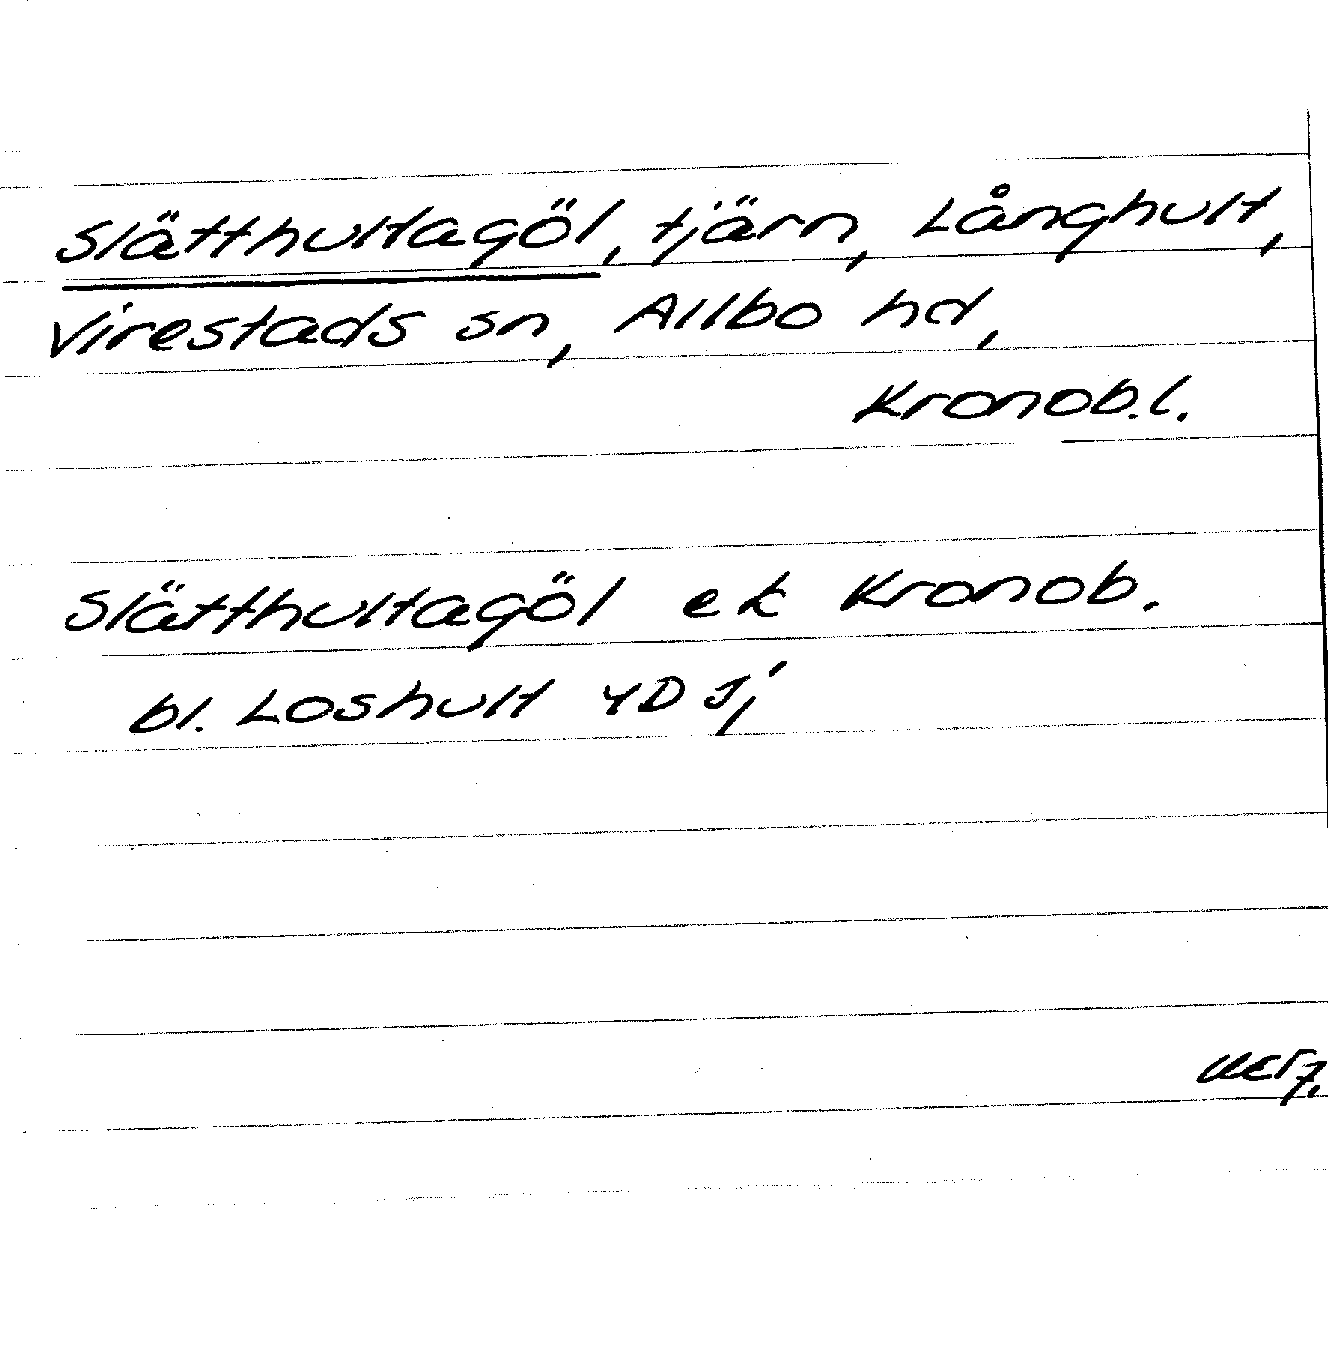 Slätthultagöl, tjärn, Långhult,
Virestads sn, Allbo hd,
Kronob.l.
Slätthultagöl ek Kronob.
bl. Loshult 4D Sj